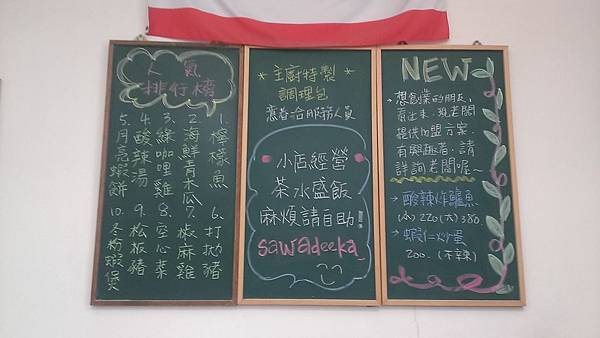 人氣
排行榜
1. 檸檬魚
2. 海鮮青木瓜
3. 綠咖哩雞
4. 酸辣湯
5. 月亮蝦餅
6. 打拋豬
7. 椒麻雞
8. 空心菜
9. 松板豬
10. 冬粉蝦煲
主廚特製
調理包
意者洽服務人員
小店經營
茶水盛飯
麻煩請自助!
sawadeeka
NEW
想創業的朋友,
看出來,現老闆
提供加盟方案,
有興趣者,請
詳詢老闆喔~
酸辣炸鱸魚
(小)220(大)380.
蝦仁炒蛋
200.(不辣)